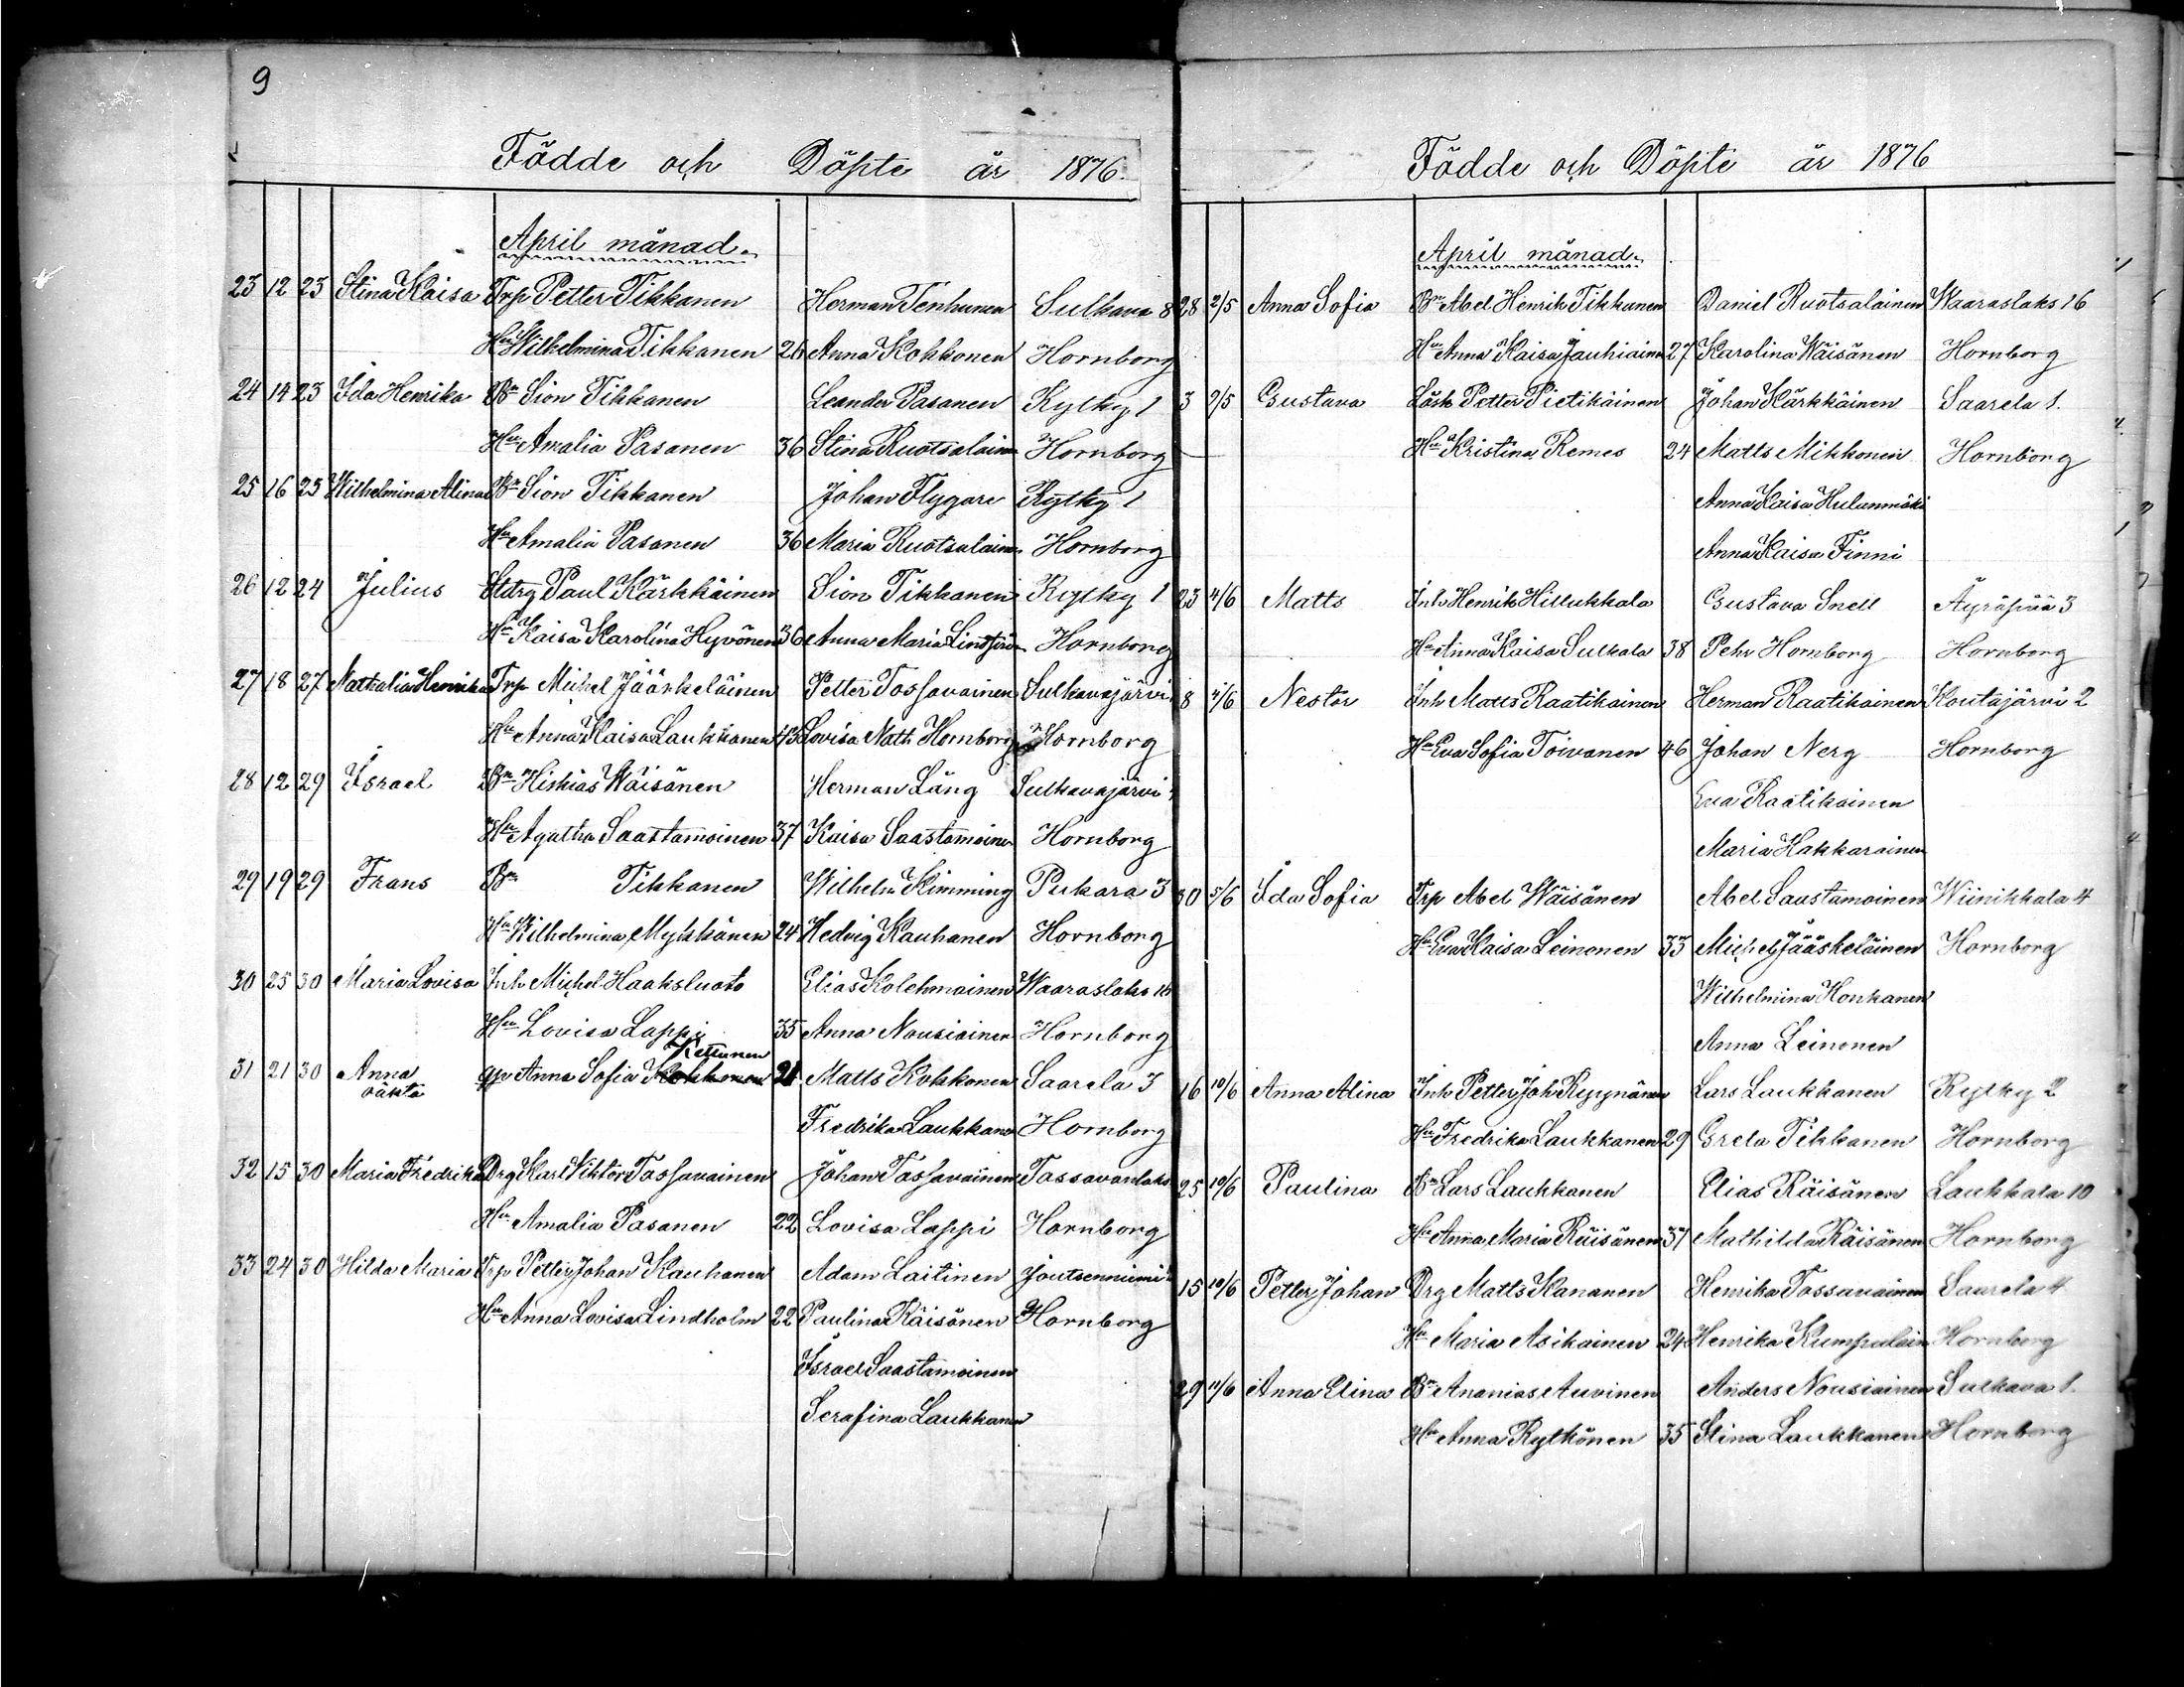 9
Födde och Döpte år 1876.
April månad.
23 12 23 Stina Kaisa Trp Petter Tikkanen Herman Tenhunen Sulkava 8
Hu Wilhelmina Tikkanen 26 Anna Kokkonen Hornborg
24 14 23 Ida Henrika Bn Sion Tikkanen Leander Pasanen Rytky 1
Hu Amalia Pasanen 36 Stina Ruotsalainen Hornborg
25 16 23 Wilhelmina Alina Bn Sion Tikkanen Johan Flygare Rytky 1
Hu Amalia Pasanen 36 Maria Ruotsalainen Hornborg
26 12 24 Julius Stdrg Paul Kärkkäinen Sion Tikkanen Rytky 1
Hu Kaisa Karolina Hyvönen 36 Anna Maria Hornborg
27 18 27 Nathalia Henrika Trp Michel Jääskeläinen Petter Tossavainen Sulkavajärvi
Hu Anna Kaisa Laukkanen 43 Lovisa Nath Hornborg Hornborg
28 12 29 Israel Bn Hiskias Wäisänen Herman Lång Sulkavajärvi
Hu Agatha Saastamoinen 37 Kaisa Saastamoinen Hornborg
29 19 29 Frans Bn Tikkanen Wilhelm Kimming Pukara 3
Hu Wilhelmina Mykkänen 24 Hedvig Kauhanen Hornborg
30 25 30 Maria Lovisa Inh Michel Haaksluoto Elias Kolehmainen Waaraslaks 16
Hu Lovisa Lappi 35 Anna Nousiainen Hornborg
Kettunen
31 21 30 Anna qp Anna Sofia Kokkonen 21 Matts Kokkonen Saarela 3
oäkta
Fredrika Laukkanen Hornborg
32 15 30 Maria Fredrika Drg Karl Viktor Tossavainen Johan Tossavainen Tossavanlaks
Hu Amalia Pasanen 22 Lovisa Lappi Hornborg
33 24 30 Hilda Maria Trp Petter Johan Kauhanen Adam Laitinen Joutsenniemi
Hu Anna Lovisa Lindholm 22 Paulina Räisänen Hornborg
Israel Saastamoinen
Serafina Laukkanen
Födde och Döpte år 1876
April månad.
28 2/5 Anna Sofia Bn Abel Henrik Tikkanen Daniel Ruotsalainen Waaraslaks 16
Hu Anna Kaisa Jauhiainen 27 Karolina Wäisänen Hornborg
3 7/5 Gustava Lösk Petter Pietikäinen Johan Kärkkäinen Saarela 1.
Hu Kristina Remes 24 Matts Mikkonen Hornborg
Anna Kaisa Hulanmäki
Anna Kaisa Finni
23 4/6 Matts Inh Henrik Hillukkala Gustava Snell Äyräpää 3
Hu Anna Kaisa Sulkala 38 Pehr Hornborg Hornborg
8 4/6 Nestor Inh Matts Raatikainen Herman Raatikainen Koutajärvi 2
Hu Eva Sofia Toivanen 46 Johan Nerg Hornborg
Eva Raatikainen
Maria Hakkarainen
30 5/6 Ida Sofia Trp Abel Wäisänen Abel Saastamoinen Wiinikkala 4
Hu Eva Kaisa Leinonen 33 Michel Jääskeläinen Hornborg
Wilhelmina Honkanen
Anna Leinonen
16 10/6 Anna Alina Inh Petter Joh Ryynänen Lars Laukkanen Rytky 2
Hu Fredrika Laukkanen 29 Greta Tikkanen Hornborg
25 10/6 Paulina Bn Lars Laukkanen Elias Räisänen Laukkala 10
Hu Anna Maria Räisänen 37 Mathilda Räisänen Hornborg
15 10/6 Petter Johan Drg Matts Kananen Henrika Tossavainen Saarela 4
Hu Maria Asikainen 24 Henrika Kumpulain Hornborg
29 11/6 Anna Elina Bn Ananias Auvinen Anders Nousiainen Sulkava 1.
Hu Anna Rytkönen 35 Stina Laukkanen Hornborg